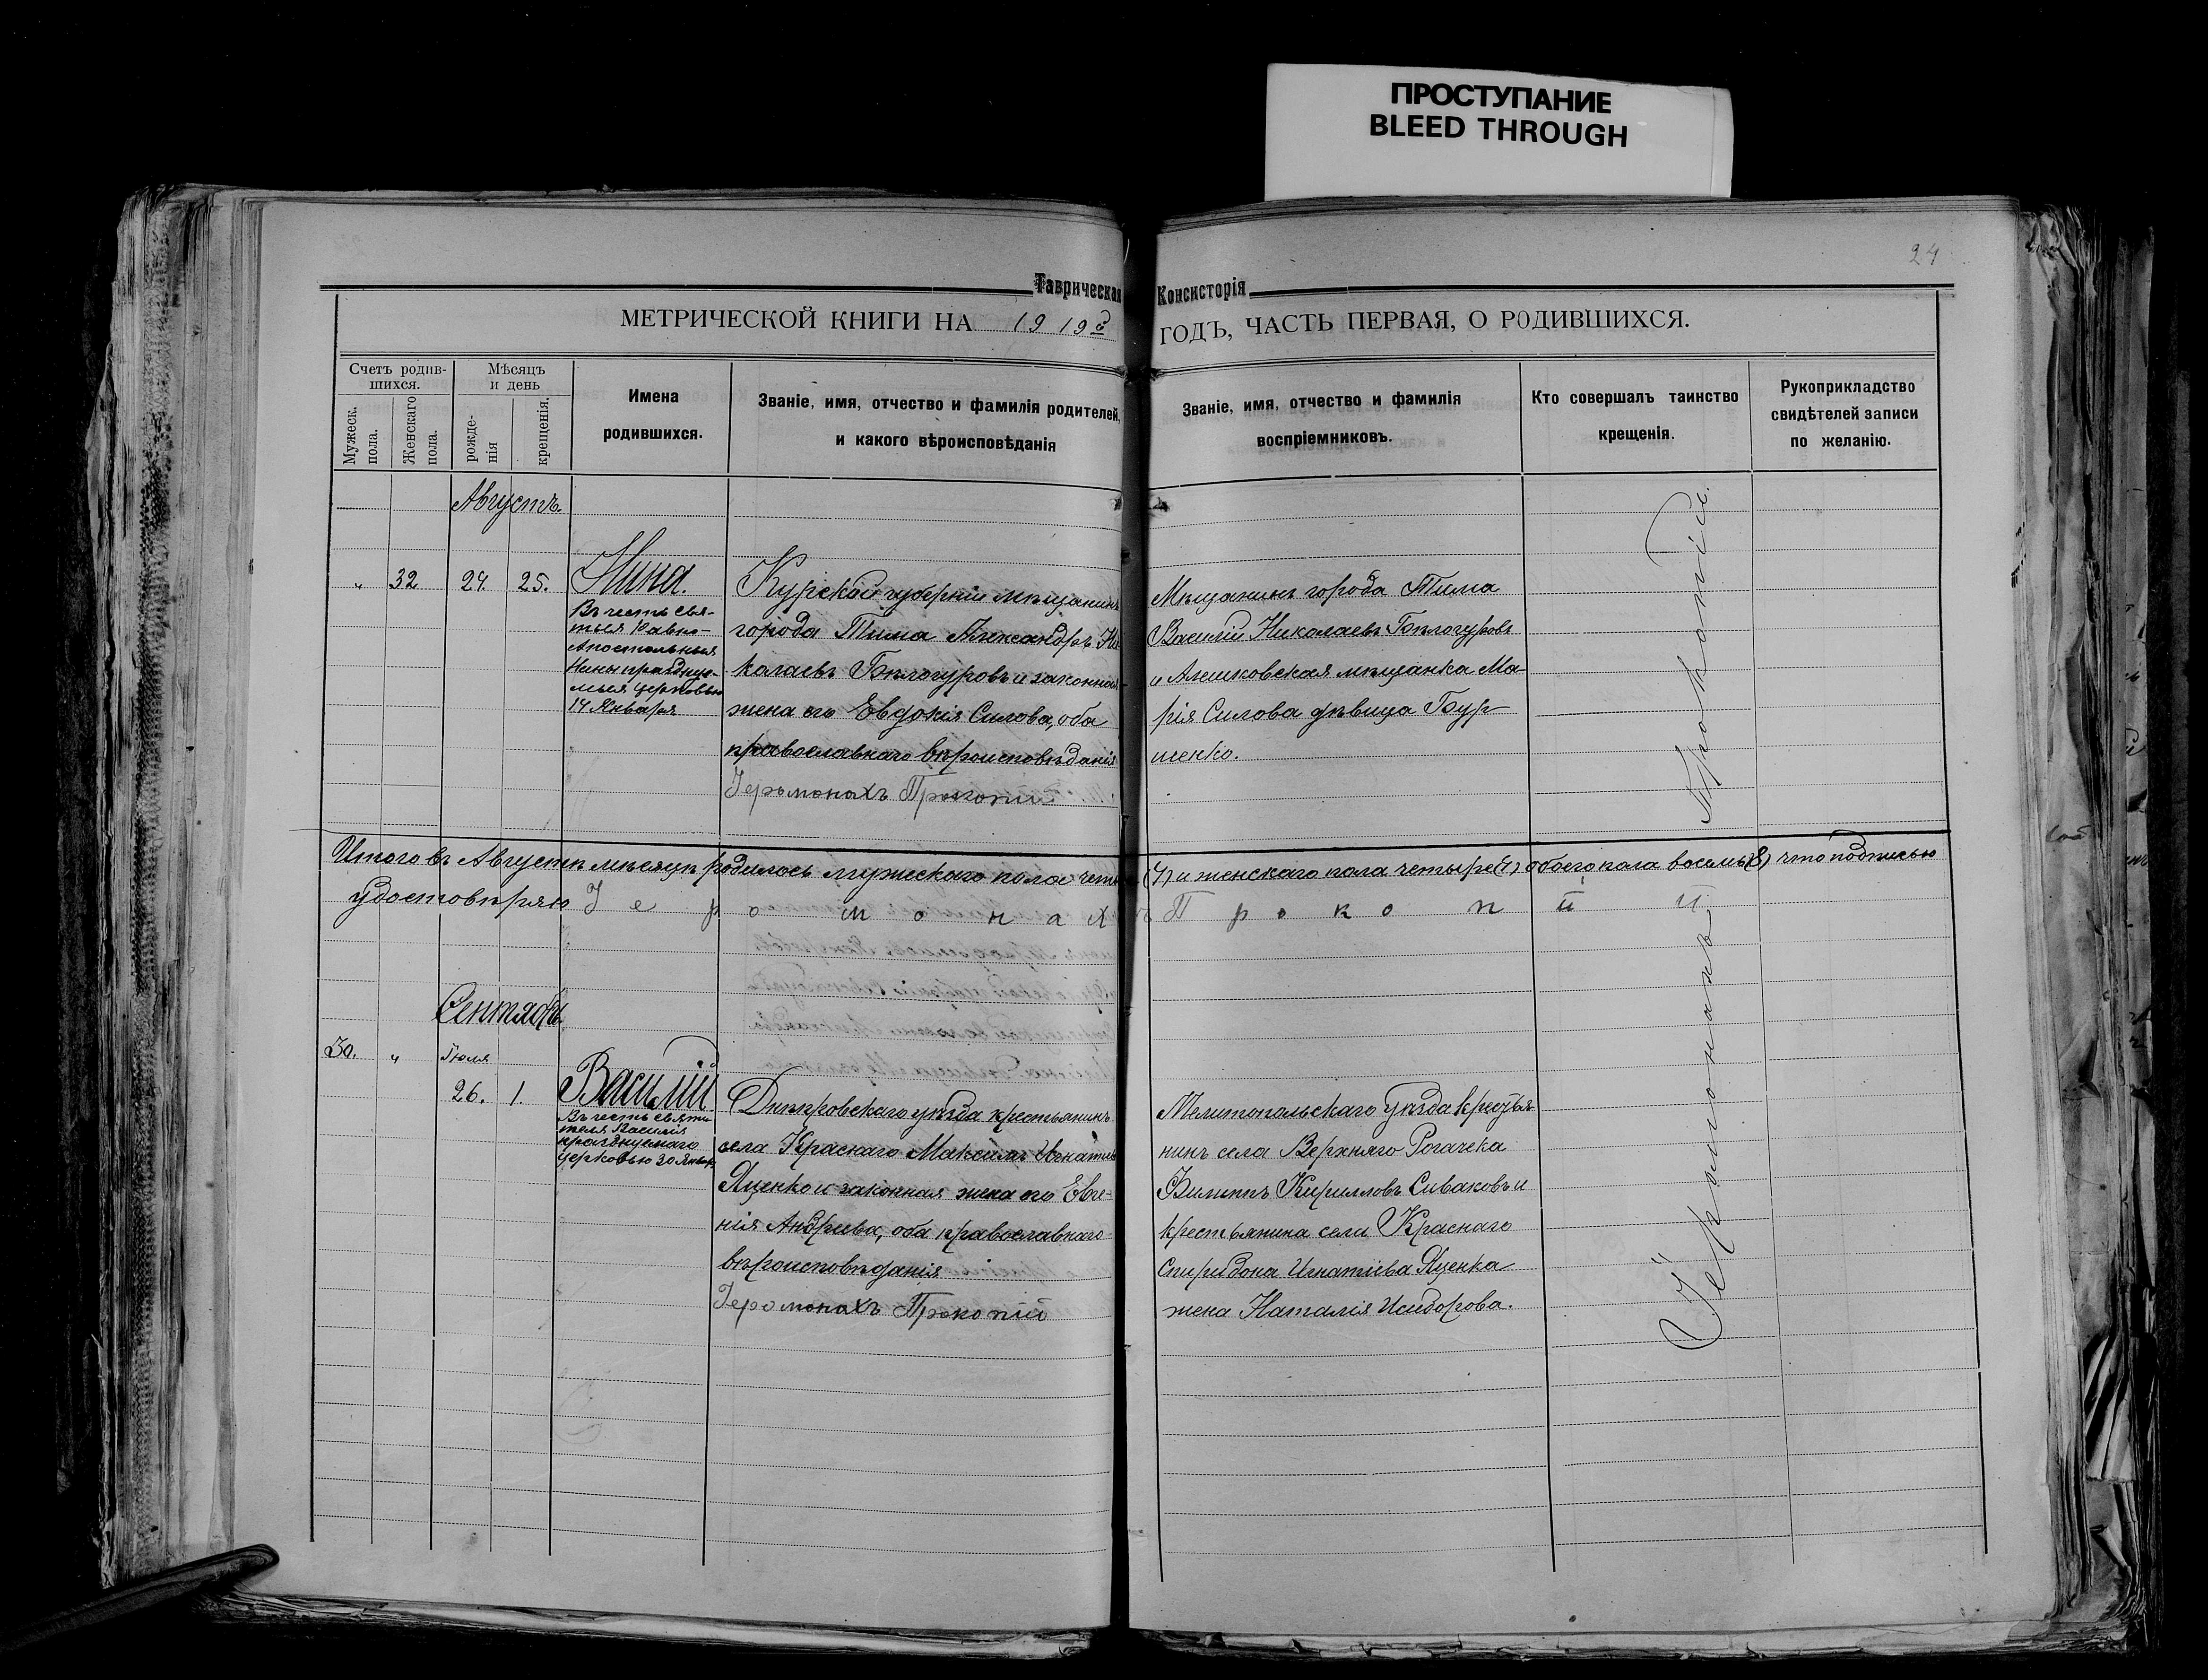 ПРОСТУПАНИЕ
BLEED THROUGH
24
Таврическая Консисторія
МЕТРИЧЕСКОЙ КНИГИ НА 1919й ГОДЪ, ЧАСТЬ ПЕРВАЯ, О РОДИВШИХСЯ.
Счетъ родив-
шихся.
Мужеск.
пола.
Женскаго
пола.
Мѣсяцъ
и день
рожде-
нія
крещенія.
Имена
родившихся.
Званіе, имя, отчество и фамилія родителей,
и какого вѣроисповѣданія
Званіе, имя, отчество и фамилія
воспріемниковъ.
Кто совершалъ таинство
крещенія.
Рукоприкладство
свидѣтелей записи
по желанію.
Августъ
„ 32 24. 25. Нина.
Въ честь свя-
тыя Равно-
Апостольныя
Нины праздну-
мыя Церковью
14 Января
Курской губерніи мѣщанинъ
города Тима Александръ Ни
колаевъ Бѣлогуровъ и законная
жена его Евдокія Силова, оба
православнаго вѣроисповѣданія
Іеромонахъ Прокопій
Мѣщанинъ города Тима
Василій Николаевъ Бѣлогуровъ
и Алешковская мѣщанка Ма-
рія Силова дѣвица Бур-
ченко.
Итого въ Августѣ мѣсяцѣ родилось мужескаго пола четы (4) и женскаго пола четыре (4) обоего пола восемь (8) что подписью
удостовѣряю Іеромонахъ Прокопій
Сентябрь
30. „ Іюля
26. 1. Василій
Въ честь святи
теля Василія
празднуемаго
Церковью 30 Января
Днѣпровскаго уѣзда крестьянинъ
села Краснаго Максимъ Игнатіев
Яценко и законная жена его Евге-
нія Андреева, оба православнаго
вѣроисповѣданія
Іеромонахъ Прокопій
Мелитопольскаго уѣзда крестья
нинъ села Верхняго Рогачека
Филиппъ Кирилловъ Сиваковъ и
крестьянина села Краснаго
Спиридона Игнатіева Яценка
жена Наталія Исидорова.
Іеромонахъ Прокопій.